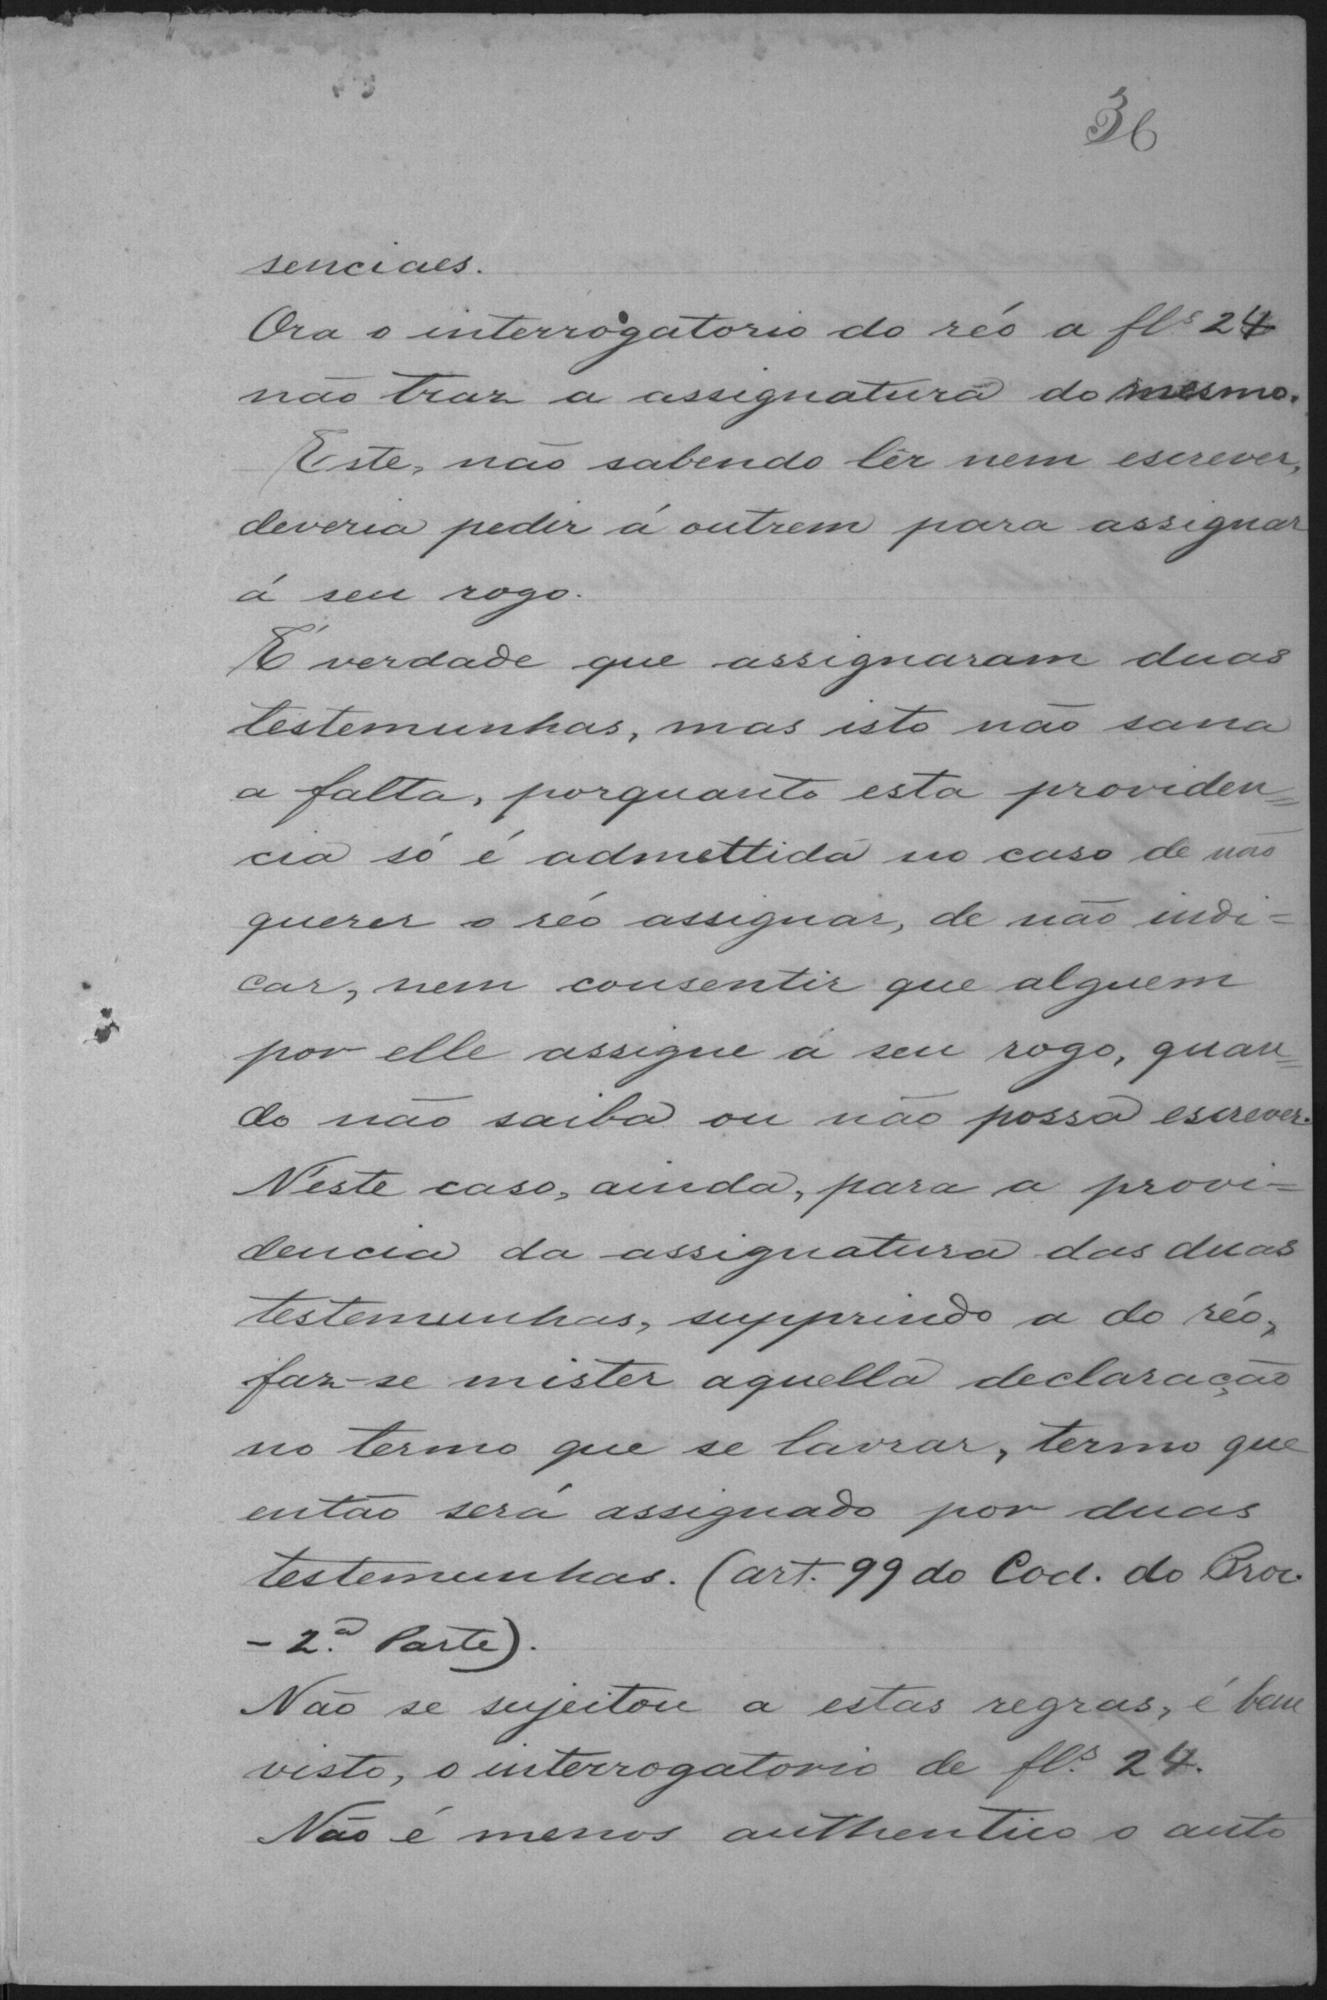 36
senciaes.
Ora o interrogatorio do réo a fl.s 24
não traz a assignatura do mesmo.
Este, não sabendo lêr nem escrever,
deveria pedir á outrem para assignar
á seu rogo.
É verdade que assignaram duas
testemunhas, mas isto não sana
a falta, porquanto esta providen=
cia só é admettida no caso de não
querer o réo assignar, de não indi=
car, nem consentir que alguem
por elle assigne á seu rogo, quan=
do não saiba ou não possa escrever.
N'este caso, ainda, para a provi=
dencia da assignatura das duas
testemunhas, supprindo a do réo,
faz-se mister aquella declaração
no termo que se lavrar, termo que
então será assignado por duas
testemunhas. (art. 99 do Cod. do Proc.
- 2.a Parte).
Não se sujeitou a estas regras, é bem
visto, o interrogatorio de fl.s 24.
Não é menos authentico o auto